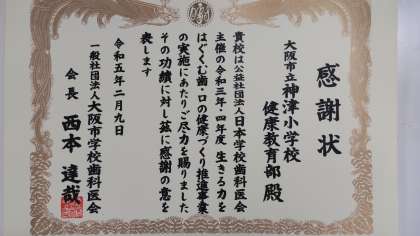 感謝状
大阪市立神津小学校
健康教育部 殿
貴校は公益社団法人日本学校歯科医会
主催の令和三年・四年度 生きる力を
はぐくむ歯・口の健康づくり推進事業
の実施にあたりご尽力を賜りました
その功績に対し茲に感謝の意を
表します
令和五年二月九日
一般社団法人大阪市学校歯科医会
会長 西本達哉